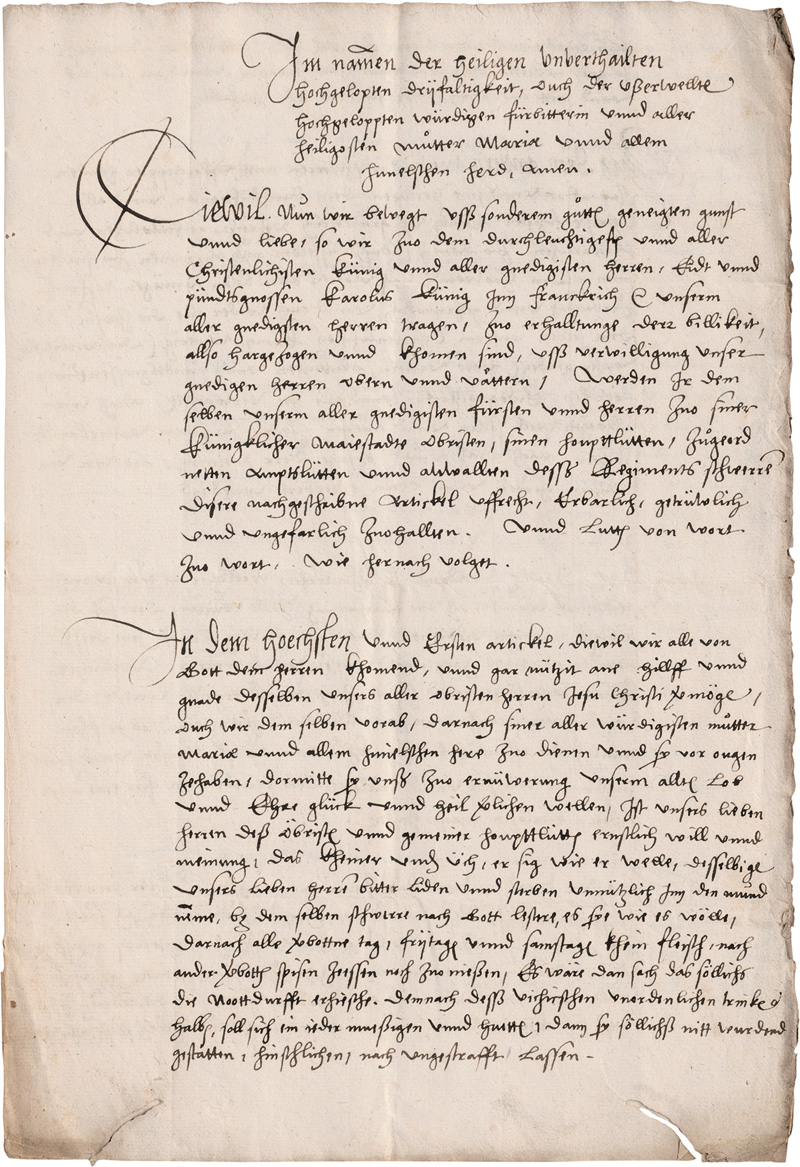 Im namen der heiligen unverthailten
hochgelopten dryfaltigkeit, ouch der ußerwellte
hochgeloppten würdigen fürbitterin unnd aller
heiligosten můtter Maria unnd allem
himelschen herd, amen.
Diewil. Nun wir bewegt usß sonderem gůtten geneigten gunst
unnd liebe, so wir zuo dem durchleuchtigesten unnd aller
Christenlichisten Künig unnd aller gnedigisten herren, Eidt unnd
pündtsgnossen Karolus Künig Inn Franckrich unserm
aller gnedigsten herren tragen, zuo erhalltunge derr billikeit,
allso hargezogen unnd khomen sind, usß verwilligung unser
gnedigen herren obern unnd våttern, Werden Ir dem
selben unserm aller gnedigisten fürsten unnd herren zuo siner
Künigklicher Maiestadte Obristen, sinen houpttlütten, zůgeord
netten Amptslütten unnd anwallten desß Regiments schwerre
disere nachgeschribne Artickel uffrecht, Erbarlich, getrüwlich
unnd ungefarlich zuohallten. Unnd Lutten von wort
zuo wort, wie hernach volget.
In dem hoechsten unnd Ersten artickel, diewil wir alle von
Gott dem herren khomend, unnd gar nützit ane hillff unnd
gnade desselben unsers aller obristen herren Jesu Christi vermöge,
ouch wir dem selben vorab, darnach siner aller würdigisten můtter
Maria unnd allem himelschen here zuo dienen unnd sy vor ougen
zehaben, dormitte sy unß zuo ernüwerung unserm allten Lob
unnd Ehre glück unnd heil verlichen wellen, Ist unsers lieben
herren deß Obristen unnd gemeiner houpttlütten ernstlich will unnd
meinung, das kheiner under üch, er sig wie er welle, desselbige
unsers lieben herren bitter liden unnd sterben unnützlich Inn den mund
nemme, by dem selben schwerre nach Gott lestere, es sye wie es wölle,
darnach alle verbottne tag, frijtag unnd samstag khein fleisch, nach
ander verbotten spisen zeessen noch zuo nießen, Es wäre dan sach das söllichs
die Noottdurfft erhiesche. Demnach desß vichischen unordenlichen trinkes
halb, soll sich ein ieder mueßigen unnd huetten, dann sy söllichß nitt wurdend
gestatten, hinschlichen, nach ungestrafft Lassen -